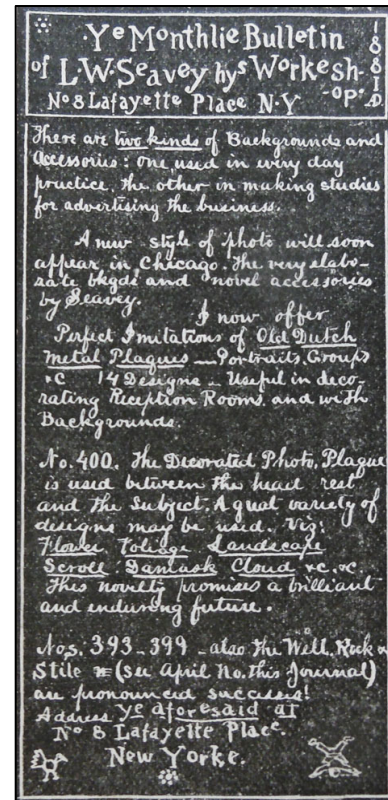 Ye Monthlie Bulletin
of L.W. Seavey hys Workesh-
-op. 1881 A.D
No 8 Lafayette Place N.Y
There are two kinds of Backgrounds and
Accessories: one, used in every day
practice, the other in making studies
for advertising the business.
A new style of photo will soon
appear in Chicago. The very elabo-
rate bkgds and novel accessories
by Seavey.
I now offer
Perfect Imitations of Old Dutch
Metal Plaques — Portraits, Groups
&c 14 Designs — Useful in deco-
rating Reception Rooms and with
Backgrounds.
No. 400. The Decorated Photo. Plaque
is used between the head rest
and the Subject. A great variety of
designs may be used. Viz:
Flower Foliage Landscape
Scroll Damask Cloud &c. &c.
This novelty promises a brilliant
and enduring future.
Nos. 393-399 - also the Well, Rock &
Stile (see April No. this Journal)
are pronounced successes!
Address ye aforesaid at
No 8 Lafayette Place.
New Yorke.